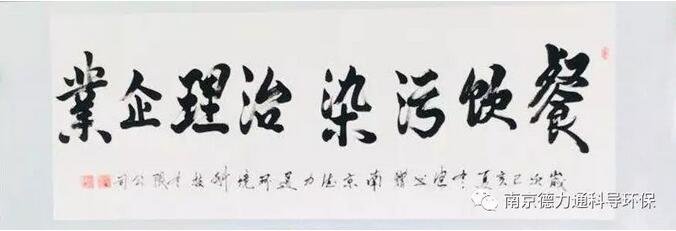 餐饮污染治理企業
歲次己亥夏 南京德力 环境科技有限公司
南京德力通科导环保